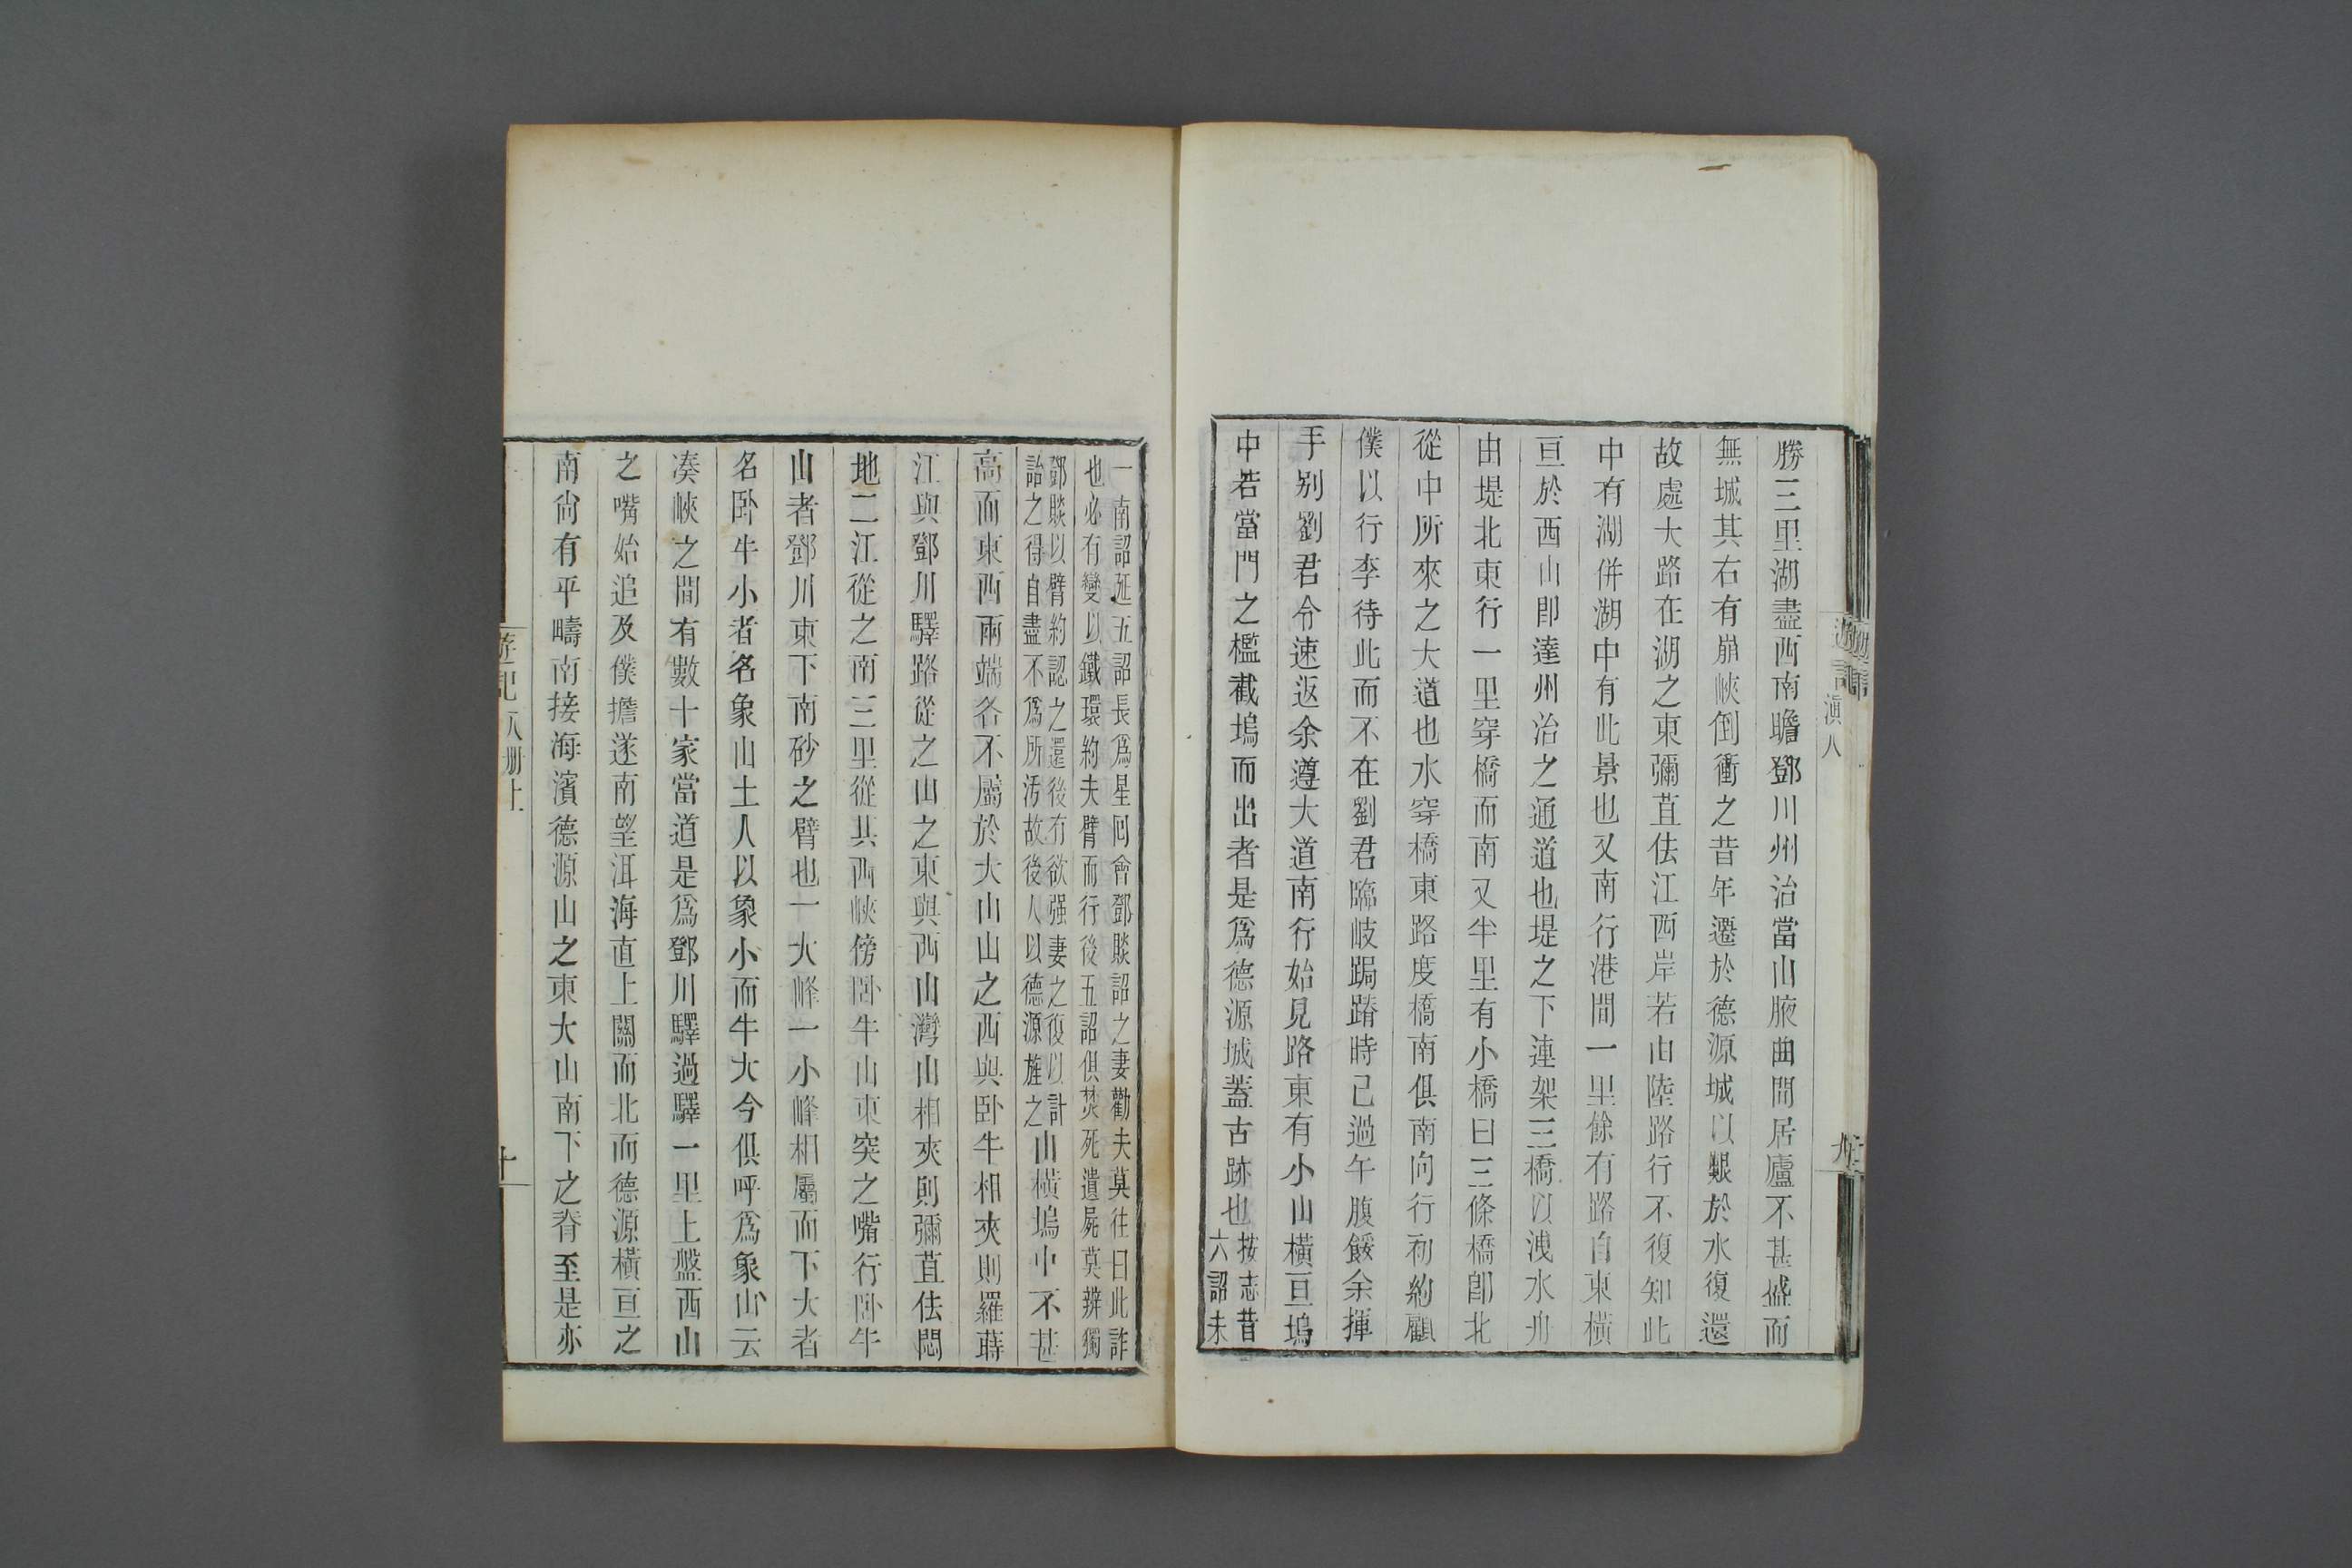 勝三里湖盡西南瞻鄧川州治當山腋曲間居廬不甚盛而
無城其右有崩峽倒衝之昔年遷於德源城以艱於水復還
故處大路在湖之東彌苴佉江西岸若由陸路行不復知此
中有湖併湖中有此景也又南行港間一里餘有路自東橫
亘於西山卽達州治之通道也堤之下連架三橋以洩水舟
由堤北東行一里穿橋而南又半里有小橋曰三條橋卽北
從中所來之大道也水穿橋東路度橋南俱南向行初約顧
僕以行李待此而不在劉君臨岐跼蹐時已過午腹餒余揮
手别劉君令速返余遵大道南行始見路東有小山橫亘塢
中若當門之檻截塢而出者是爲德源城蓋古跡也按志昔
六詔未
遊記 滇八
九
一南詔延五詔長爲星回會鄧賧詔之妻勸夫莫往曰此詐
也必有變以鐵環約夫臂而行後五詔俱焚死遺屍莫辨獨
鄧賧以臂約認之還後有欲强妻之復以計
詒之得自盡不爲所汚故後人以德源旌之山橫塢中不甚
高而東西兩端各不屬於大山山之西與卧牛相夾則羅蒔
江與鄧川驛路從之山之東與西山灣山相夾則彌苴佉悶
地二江從之南三里從其西峽傍卧牛山東突之嘴行卧牛
山者鄧川東下南砂之臂也一大峰一小峰相屬而下大者
名卧牛小者名象山土人以象小而牛大今俱呼爲象山云
凑峽之間有數十家當道是爲鄧川驛過驛一里上盤西山
之嘴始追及僕擔遂南望洱海直上關而北而德源橫亘之
南尙有平疇南接海濱德源山之東大山南下之脊至是亦
遊記 八册上
十